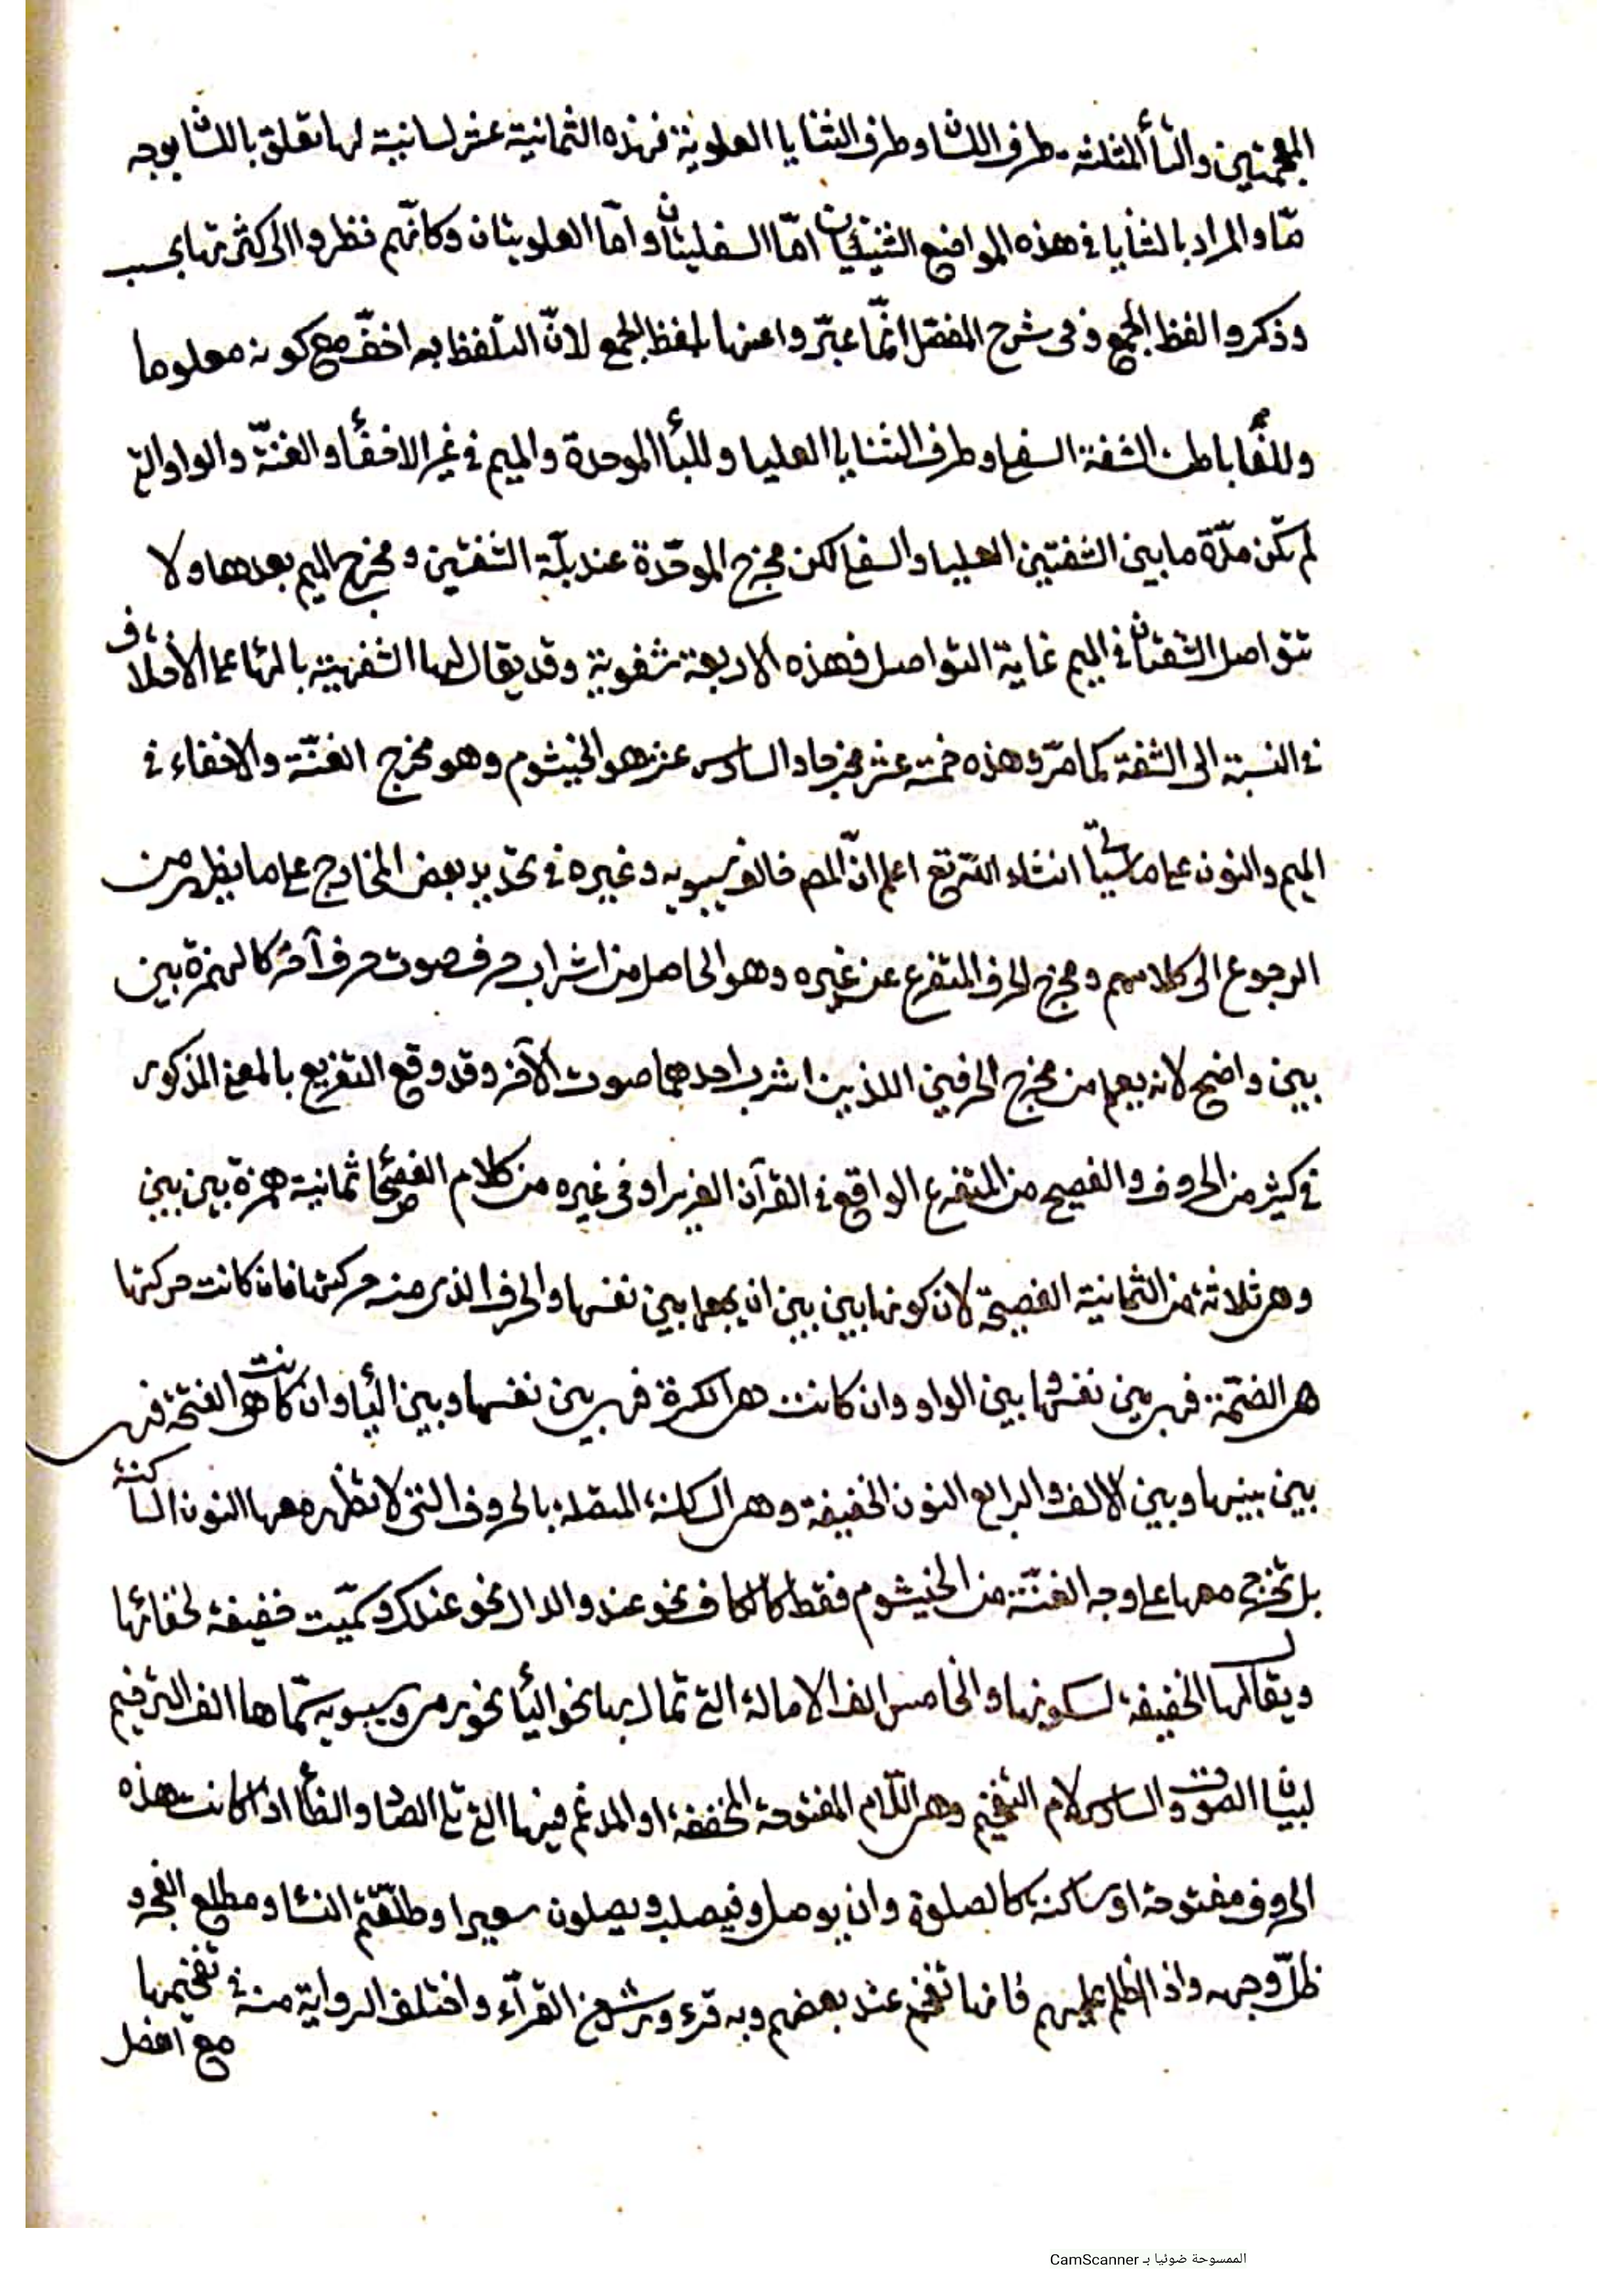 المعجمتين والثاء المثلثة طرف اللسان وطرف الثنايا العلوية فهذه الثمانية عشر لسانية لها تعلق باللسان بوجه
مّا والمراد بالثنايا في هذه المواضع الثنيتان امّا السفليتان وامّا العلويتان وكانّهم نظروا الى كثرتها بحسب
وذكروا لفظ الجمع وفى شرح المفصّل انّما عبّروا عنها بلفظ الجمع لانّ التلفظ به اخفّ مع كونه معلوما
وللفاء باطن الشفة السفلى وطرف الثنايا العليا وللباء الموحدة والميم في غير الاخفاء والغنّة والواو التي
لم تكن مدّة ما بين الشفتين العليا والسفلى لكن مخرج الموحّدة عند بلّة الشفتين ومخرج الميم بعدها ولا
تتواصل الشفتان في الميم غاية التواصل فهذه الاربعة شفوية وقد يقال لها الشفهية بالهاء على الاختلاف
في النسبة الى الشفة كما مرّ وهذه خمسة عشر مخرجا والسادس عشر هو الخيشوم وهو مخرج الغنّة والاخفاء في
الميم والنون على ما سيأتي ان شاء الله تع اعلم انّ المص خالف سيبويه وغيره في تحديد بعض المخارج على ما يظهر من
الرجوع الى كلامهم ومخرج الحرف المتفرع عن غيره وهو الحاصل من اشراب حرف صوت حرف آخر كالهمزة بين
بين واضح لانه يعلم من مخرج الحرفين اللذين اشرب احدهما صوت الآخر وقد وقع التفريع بالمعنى المذكور
في كثير من الحروف والفصيح من المتفرع الواقع في القرآن العزيز او في غيره من كلام الفصحاء ثمانية همزة بين بين
وهي ثلاثة من الثمانية الفصيحة لان كونها بين بين ان يجعل بين نفسها والحرف الذي منه حركتها فان كانت حركتها
هي الضمّة فهي بين نفسها وبين الواو وان كانت هي الكسرة فهي بين نفسها وبين الياء وان كانت هو الفتحة فهي
بين بينها وبين الالف والرابع النون الخفيفة وهي الساكنة المتصلة بالحروف التي لا تظهر معها النون الساكنة
بل تخرج معها على وجه الغنّة من الخيشوم فقط كالكاف نحو عند والدال نحو عندك وسمّيت خفيفة لخفائها
ويقال لها الخفيفة لسكونها والخامس الف الامالة التي تمال بها نحو الياء نحو رمى وسيبويه سمّاها الف الترخيم
لبيان الصوت والسادس لام التفخيم وهي اللّام المفتوحة المخففة او المدغم فيها التي تلي الصاد والظاء اذا كانت هذه
الحروف مفتوحة او ساكنة كالصلوة وان يوصل وفيصلب ويصلون سعيرا وطلّقتم النساء ومطلع الفجر و
ظلّ وجهه واذا اظلم عليهم فانها تفخم عند بعضهم وبه قرء ورش من القرّاء واختلف الرواية منه في تفخيمها
مع افضل
الممسوحة ضوئيا بـ CamScanner